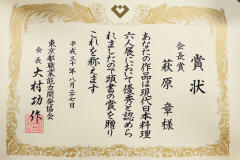 賞状
会長賞
萩原 章様
あなたの作品は現代日本料理
六人展において優秀と認めら
れましたの頭書の賞を贈り
これを称えます
平成三十年八月二十七日
東京都職業能力開発協会
会長 大村功作